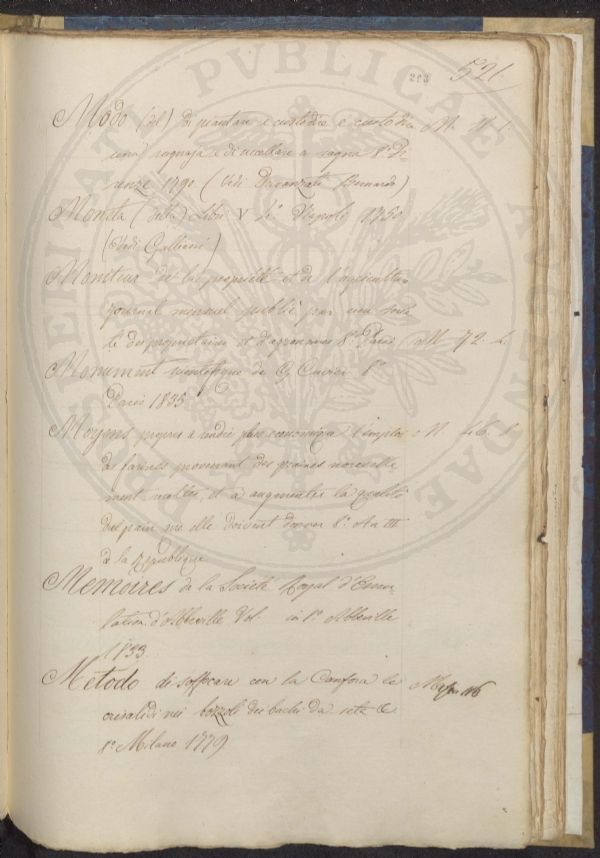 PROSPERITATI PVBLICAE AVGENDAE
203 526
Modo (del) di piantare e custodire e custodire M. N. 1.
una ragnaja e di uccellare a ragna 8.° Fi-
renze 1790 (Vedi Davanzati Bernardo)
Moneta (della) libri V 4.° Napoli 1750
(Vedi Galliani)
Moniteur de la propriété et de l'agriculture
journal mensuel publié par une socié
té des propriétaires et d'agronomes 8.° Paris M 72.
Monument de G. Cuvier 8.°
Paris 1835
Moyens propres à rendre plus économique l'emploi N
des farines provenant des graines nouvelle
ment recoltées, et à augmenter la qualité
du pain que elle doivent donner 8.° An III
de la Republique
Memoires de la Societé Royal d'Emu-
lation d'Abbeville Vol. in 8.° Abbeville
1833
Metodo di soffocare con la Canfora le
crisalidi nei bozzoli dei bachi da seta &
8.° Milano 1779